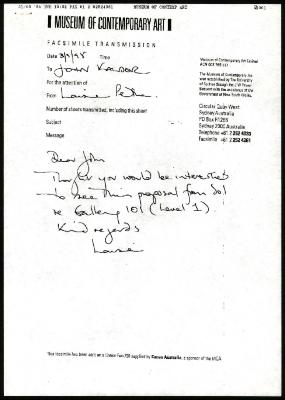 MUSEUM OF CONTEMPORARY ART
MUSEUM OF CONTEMPORARY ART
FACSIMILE TRANSMISSION
Date
To John Kaldor
For the attention of
From
Number of sheets transmitted, including this sheet
Subject
Message
Museum of Contemporary Art Limited
The Museum of Contemporary Art
was established by the University
of Sydney through the J W Power
Bequest with the assistance of the
Government of New South Wales.
Circular Quay West
Sydney Australia
PO Box R1286
Sydney 2000 Australia
Telephone +61 2 252 4033
Facsimile +61 2 252 4361
Dear John
Thought you would be interested
to see this proposal from Sol
re Gallery 101 (Level 1).
Kind regards
This facsimile has been sent on a Canon Fax supplied by Canon Australia, a sponsor of the MCA